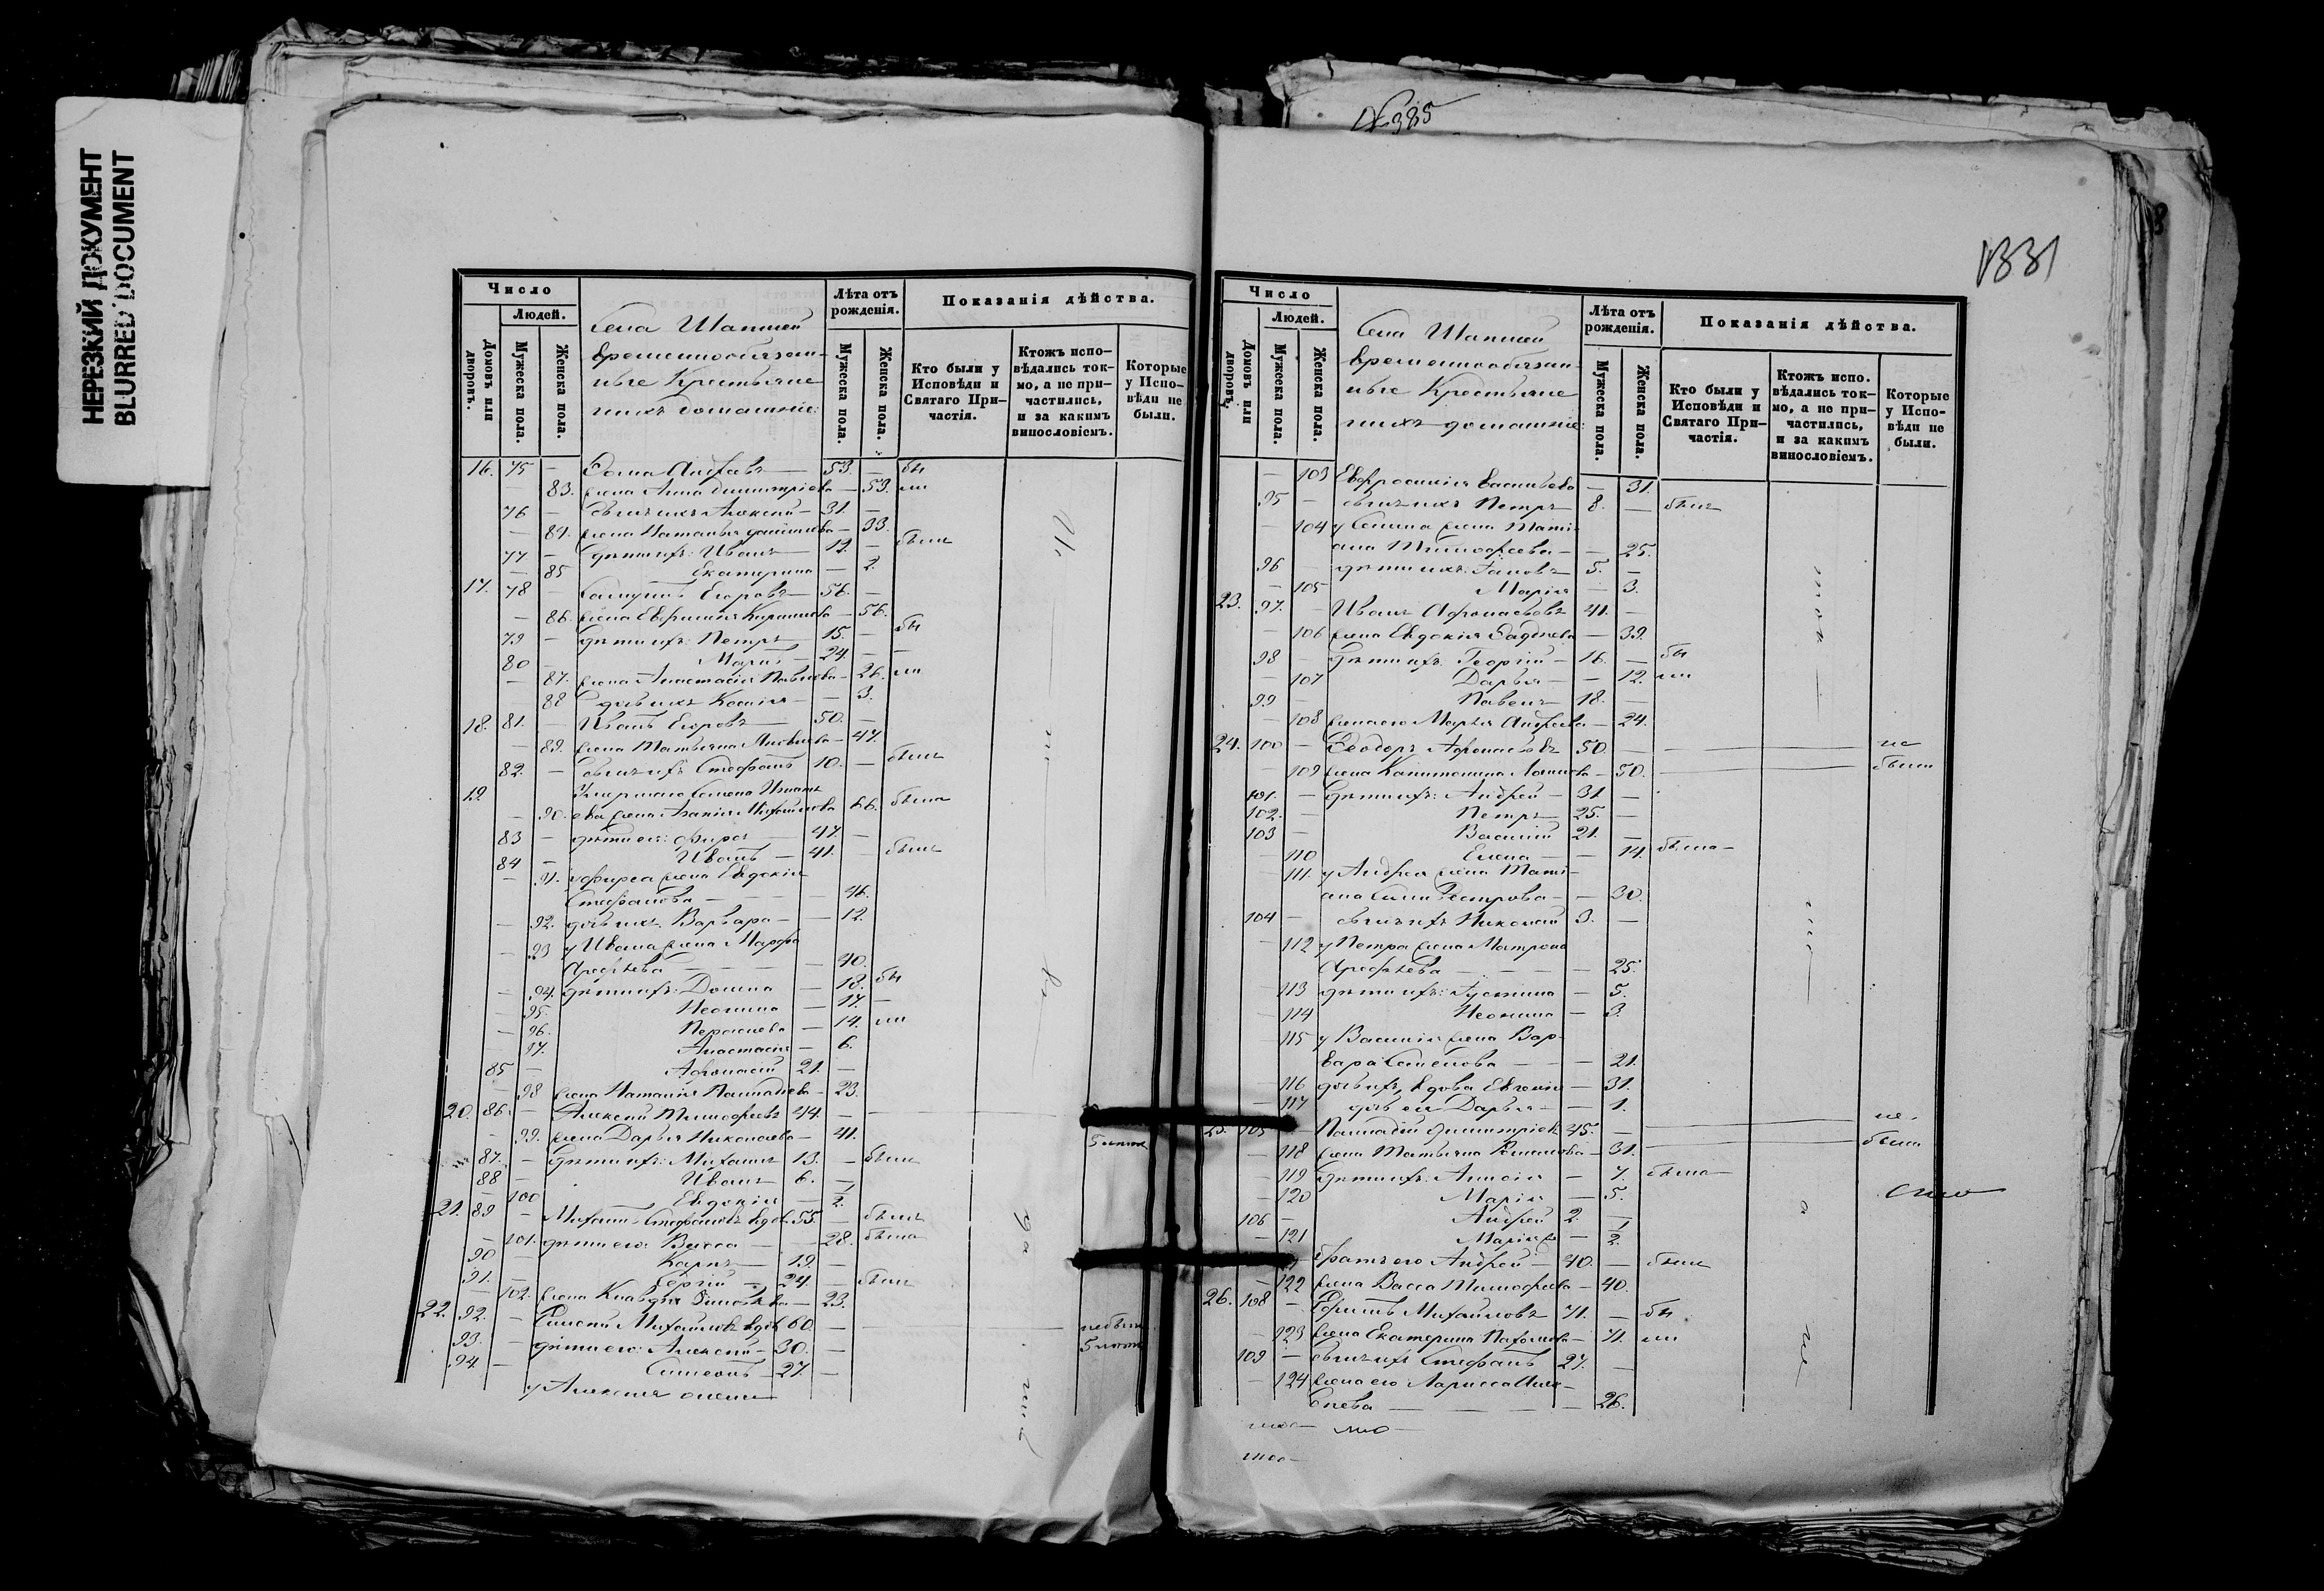 НЕРЕЗКИЙ ДОКУМЕНТ
BLURRED DOCUMENT
№ 385
1331
Число
Людей.
Домовъ или дворовъ.
Мужеска пола.
Женска пола.
Села
временнообязан-
ные Крестьяне
и ихъ домашніе:
Лѣта отъ рожденія.
Мужеска пола.
Женска пола.
Показанія дѣйства.
Кто были у Исповѣди и Святаго Причастія.
Ктожъ исповѣдались токмо, а не причастились, и за какимъ винословіемъ.
Которые у Исповѣди не были.
16. 75 — Фома 53. — бы
— 83. жена Анна Димитріева — 53. ли
76 — сынъ ихъ Алексій — 31. —
— 84. жена Наталья — 33.
77 — дѣти ихъ: Иванъ — 12. — были
— 85 Екатерина — 2.
17. 78 — Егоровъ — 56. —
— 86. жена — 56.
79 — дѣти ихъ: Петръ — 15. — бы
80 — 24. —
— 87. жена Анастасія Павлова — 26. ли
— 88 дочь ихъ — 3.
18. 81. — Иванъ Егоровъ — 50. —
— 89. жена Татьяна Яковлева — 47.
82. — сынъ ихъ Стефанъ 10. — были
19. Умершаго
— 90. жена Михайлова 66. была
83 — дѣти ея: Фирсъ — 47. —
84 — Иванъ — 41. — были
— 91. у Фирса жена Евдокія
Стефанова — 46.
— 92. дочь ихъ Варвара — 12.
— 93 у Ивана жена Марфа
Арефьева — 40.
— 94. дѣти ихъ: Домна — 18. бы
— 95. Неонила — 17. —
— 96. — 14. ли
— 97. Анастасія — 6.
85 — Афонасій 21. —
— 98 жена Наталія — 23.
20. 86. — Алексій Тимофеевъ 44. —
— 99. жена Дарья Николаева — 41.
87. — дѣти ихъ: Михаилъ 13. — были
88 — Иванъ — 6. —
— 100 Евдокія — 2.
21. 89 — Михаилъ Стефановъ вдов. 55. — былъ
— 101. дѣти его: Васса — 28. была
90 — Карпъ — 19. —
91. — Сергій — 24. — были
— 102. жена Клавдія — 23.
22. 92. — Михайловъ вдов. 60. —
93. — дѣти его: Алексій — 30. —
94. — Симеонъ — 27. —
у Алексія жена
Число
Людей.
Домовъ или дворовъ.
Мужеска пола.
Женска пола.
Села
временнообязан-
ные Крестьяне
и ихъ домашніе:
Лѣта отъ рожденія.
Мужеска пола.
Женска пола.
Показанія дѣйства.
Кто были у Исповѣди и Святаго Причастія.
Ктожъ исповѣдались токмо, а не причастились, и за какимъ винословіемъ.
Которые у Исповѣди не были.
— 103 Евфросинія Васильева — 31.
95 — сынъ ихъ Петръ 8. — были
— 104 у Семена жена Тати-
ана Тимофеева — 25.
96 — дѣти ихъ: Іаковъ 5. —
— 105 Марія — 3.
23. 97. — Иванъ Афонасьевъ 41. —
— 106 жена Евдокія — 39.
98 — дѣти ихъ: Георгій — 16. — бы
— 107 Дарья — 12. ли
99 — Павелъ — 18. —
— 108 жена его Марья Андреева — 24.
24. 100 — Ѳеодоръ Афонасьевъ 50. — не
— 109 жена Капитолина — 50. были
101. — дѣти ихъ: Андрей — 31 —
102. — Петръ — 25. —
103 — Василій 21. —
— 110 Елена — 14. была
— 111. у Андрея жена Тати-
ана — 30.
104 — сынъ ихъ Николай 3. —
— 112 у Петра жена Матрона
Арефьева — 25.
— 113 дѣти ихъ: Іустина — 5.
— 114 Неонила — 3.
— 115 у Василія жена Вар-
вара Семенова — 21.
— 116 дочь ихъ вдова Евгенія — 31.
— 117 дочь ея Дарья — 1.
25. 105 — Палладій Димитріевъ 45. — не
— 118 жена Татьяна Романова — 31. были
— 119 дѣти ихъ: Анисія — 7. была
— 120 Марія — 5.
106 — Андрей 2. —
— 121 Марія — 2.
братъ его Андрей — 40. — были
— 122 жена Васса Тимофеева — 40.
26. 108 — Ефимъ Михайловъ 71. — бы
— 123 жена Екатерина Пахомова — 71. ли
109 — сынъ ихъ Стефанъ 27. —
— 124 жена его Ларисса
— 26.